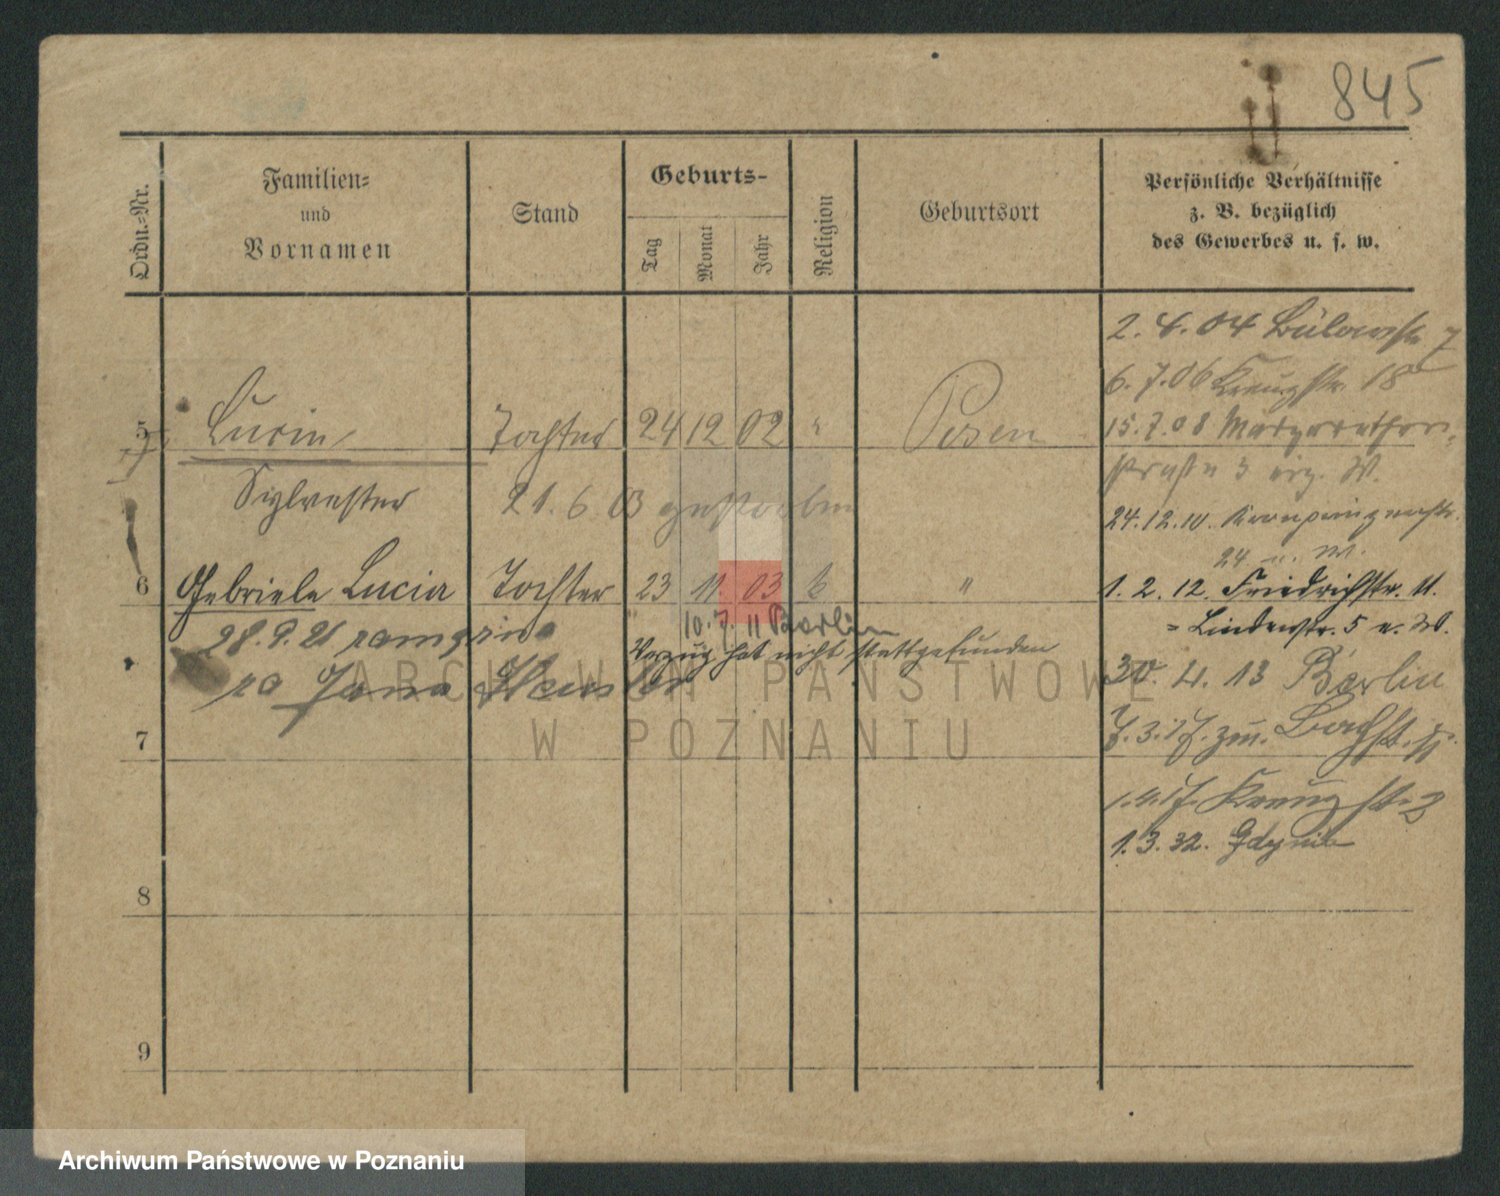 845
Ordn.-Nr.
Familien-
und
Vornamen
Stand
Geburts-
Tag
Monat
Jahr
Religion
Geburtsort
Persönliche Verhältnisse
z. B. bezüglich
des Gewerbes u. s. w.
2. 4. 04 Bülowstr. 7
6. 7. 06 Kreuzstr. 18
5 Lucia Tochter 24 12 02 " Posen
15. 7. 08 Margarethen-
straße 3
Sylvester 21. 6 03 gestorben
24. 12. 10. Kronprinzenstr.
24 u. W.
6 Gabriele Lucia Tochter 23 11. 03 k "
1. 2. 12. Friedrichstr. 11.
10. 7. 11 Berlin
28. 9. 21
= Lindenstr. 5 u. W.
Verzug hat nicht stattgefunden
za Jana
30. 4. 13 Berlin
7
7. 3. 17. Bachstr.
1. 4. 17. Kreuzstr. 2
1. 3. 32. Gdynia
8
9
ARCHIWUM PAŃSTWOWE
W POZNANIU
Archiwum Państwowe w Poznaniu